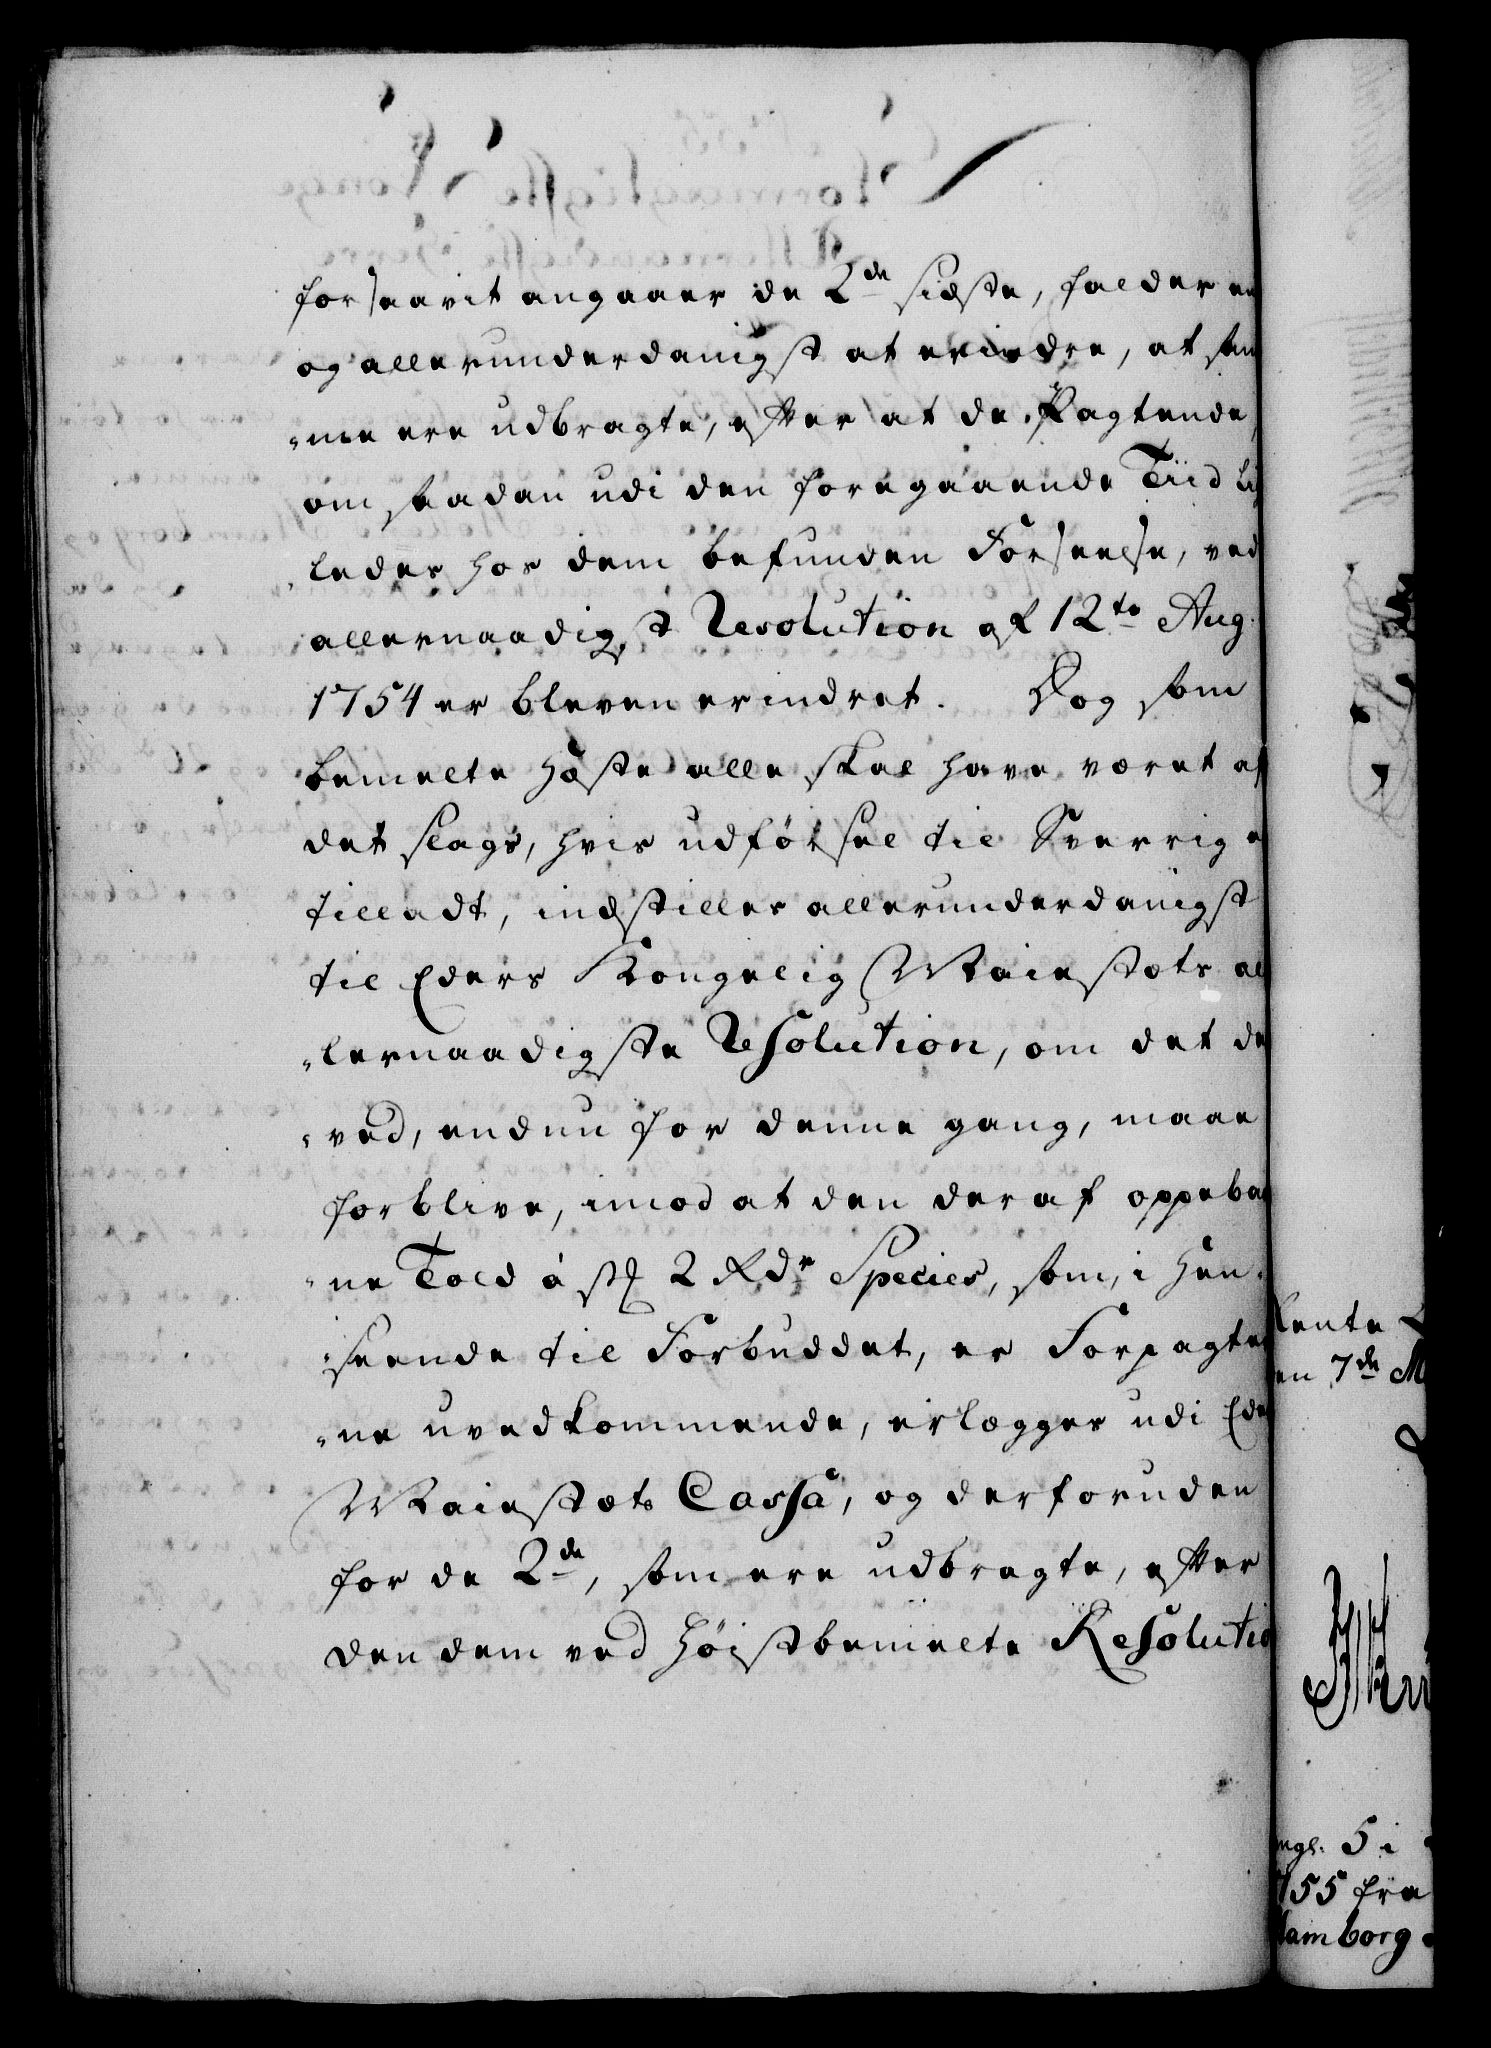 forsaavit angaaer de 2de sidste, falder en
og allerunderdanigst at erindre, at sam
„me ere udbragte, efter at de Pagtende,
om saadan udi den foregaaende Tiid lige
„ledes hos dem befunden Forseelse, ved
allernaadigst Resolution af 12te Aug.
1754 er bleven erindret. Dog som
bemelte Heste alle skal have været af
det slags, hvis udførsel til Sverrig e
tilladt, indstilles allerunderdanigst
til Eders Kongelig Maiestæts al
„lernaadigste Resolution, om det der
„ved, endnu for denne gang, maae
forblive, imod at den deraf oppebaa
„ne Told à st 2 Rdr Species, som, i Hen„
„seende til Forbuddet, er Forpagter
„ne uvedkommende, erlægges udi Eders
Maiestæts Cassa, og derforuden
for de 2de, som ere udbragte, efter
den dem ved høistbemelte Resolutio
Rente
en 7de M
5 i
1755 fra
Hamborg